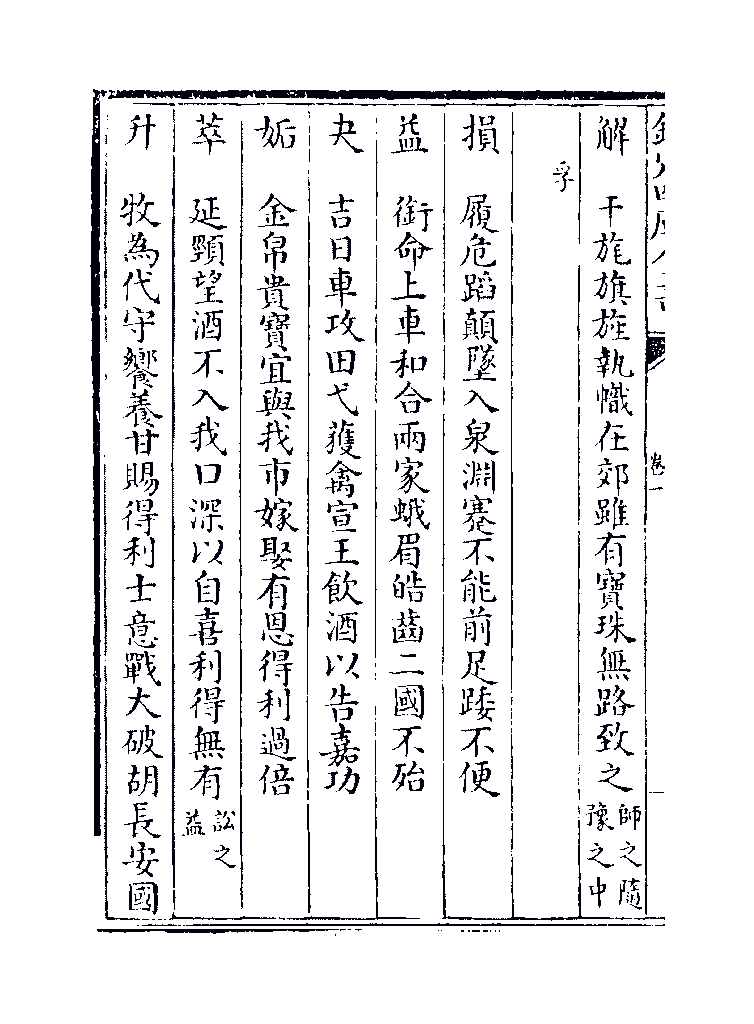 解 干旄旗旌執幟在郊雖有寶珠無路致之師之隨豫之中
孚
損 履危蹈顛墜入泉淵蹇不能前足踒不便
益 銜命上車和合兩家蛾眉皓齒二國不殆
夬 吉日車攻田弋獲禽宣王飲酒以告嘉功
姤 金帛貴寶宜與我市嫁娶有恩得利過倍
萃 延頸望酒不入我口深以自喜利得無有訟之益
升 牧為代守饗養甘賜得利士意戰大破胡長安國
卷一